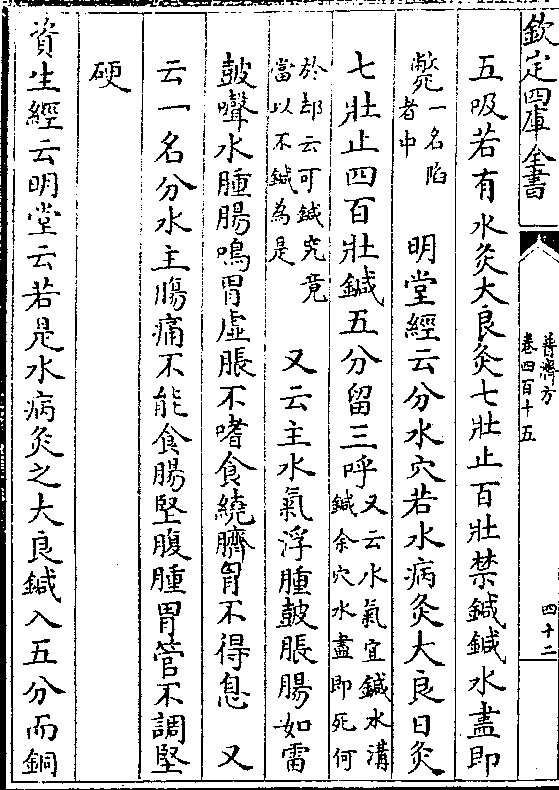 欽定四庫全書
普濟方
卷四百十五
四十二
五吸若有水灸大良灸七壯止百壯禁鍼鍼水盡即
斃一名䧟
者中
明堂經云分水穴若水病灸大良日灸
七壯止四百壯鍼五分留三呼又云水氣宜鍼水溝
鍼余穴水盡即死何
於却云可鍼究竟
當以不鍼為是
又云主水氣浮腫皷脹腸如雷
皷聲水腫腸鳴胃虛脹不嗜食繞臍胷不得息 又
云一名分水主腸痛不能食腸堅腹腫胃管不調堅
硬
資生經云明堂云若是水病灸之大良鍼入五分而銅